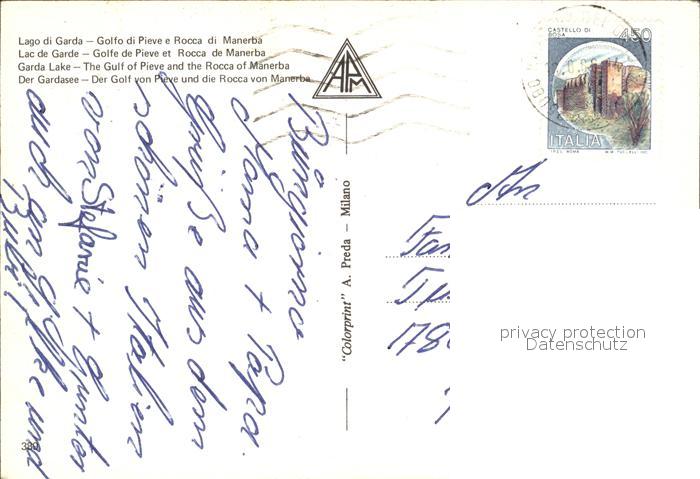 Lago di Garda – Golfo di Pieve e Rocca di Manerba
Lac de Garde – Golfe de Pieve et Rocca de Manerba
Garda Lake – The Gulf of Pieve and the Rocca of Manerba
Der Gardasee – Der Golf von Pieve und die Rocca von Manerba
APM
CASTELLO DI
450
ITALIA
An
Buongiorno
Mama + Papa.
Grüße aus dem
schönen Italien
von Stefanie + Gunter
auch an
und
"Colorprint" A. Preda – Milano
178
privacy protection
Datenschutz